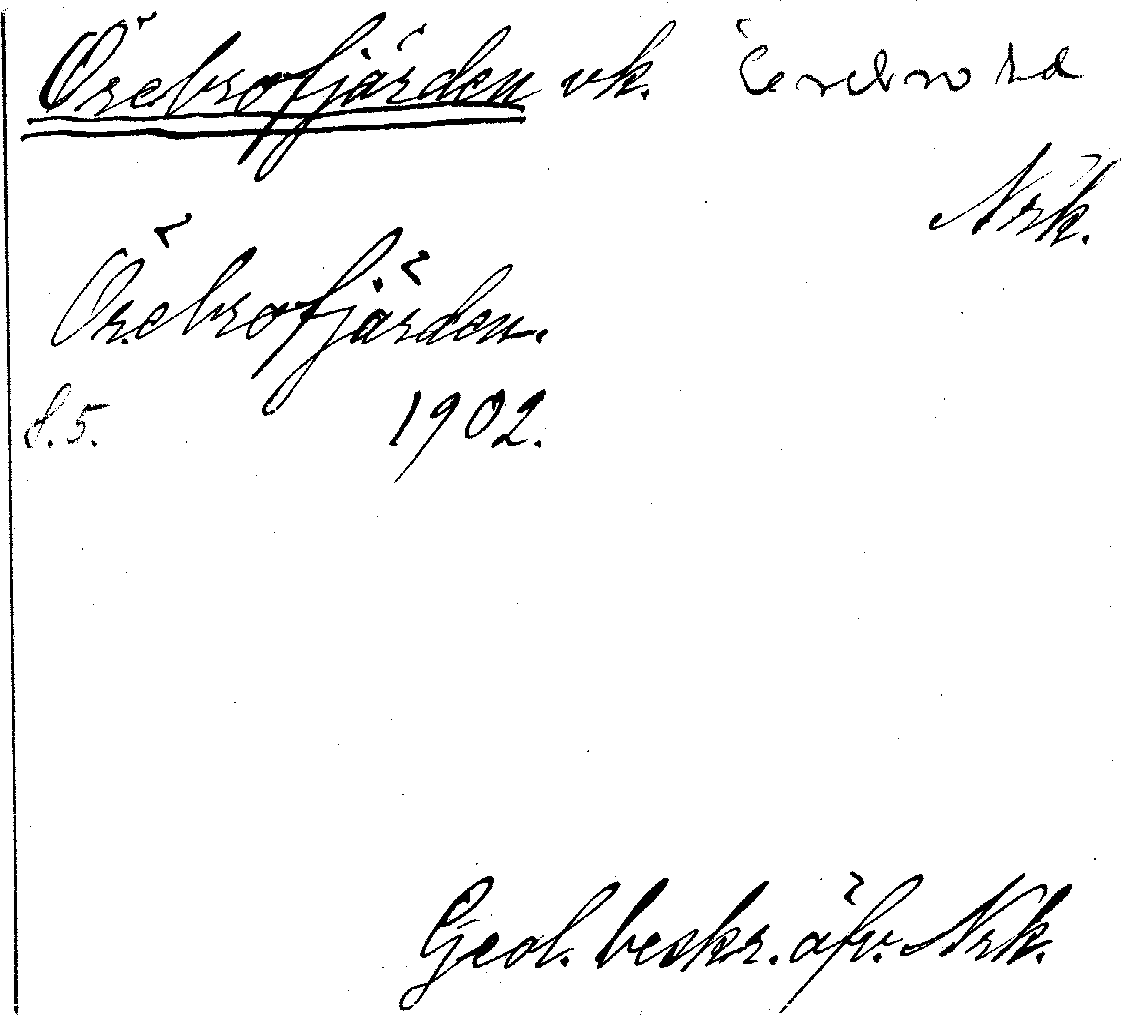 Örebrofjärden vk. Örebro hd
Nrk.
Örebrofjärden.
S. 5. 1902.
Geol. beskr. öfv. Nrk.